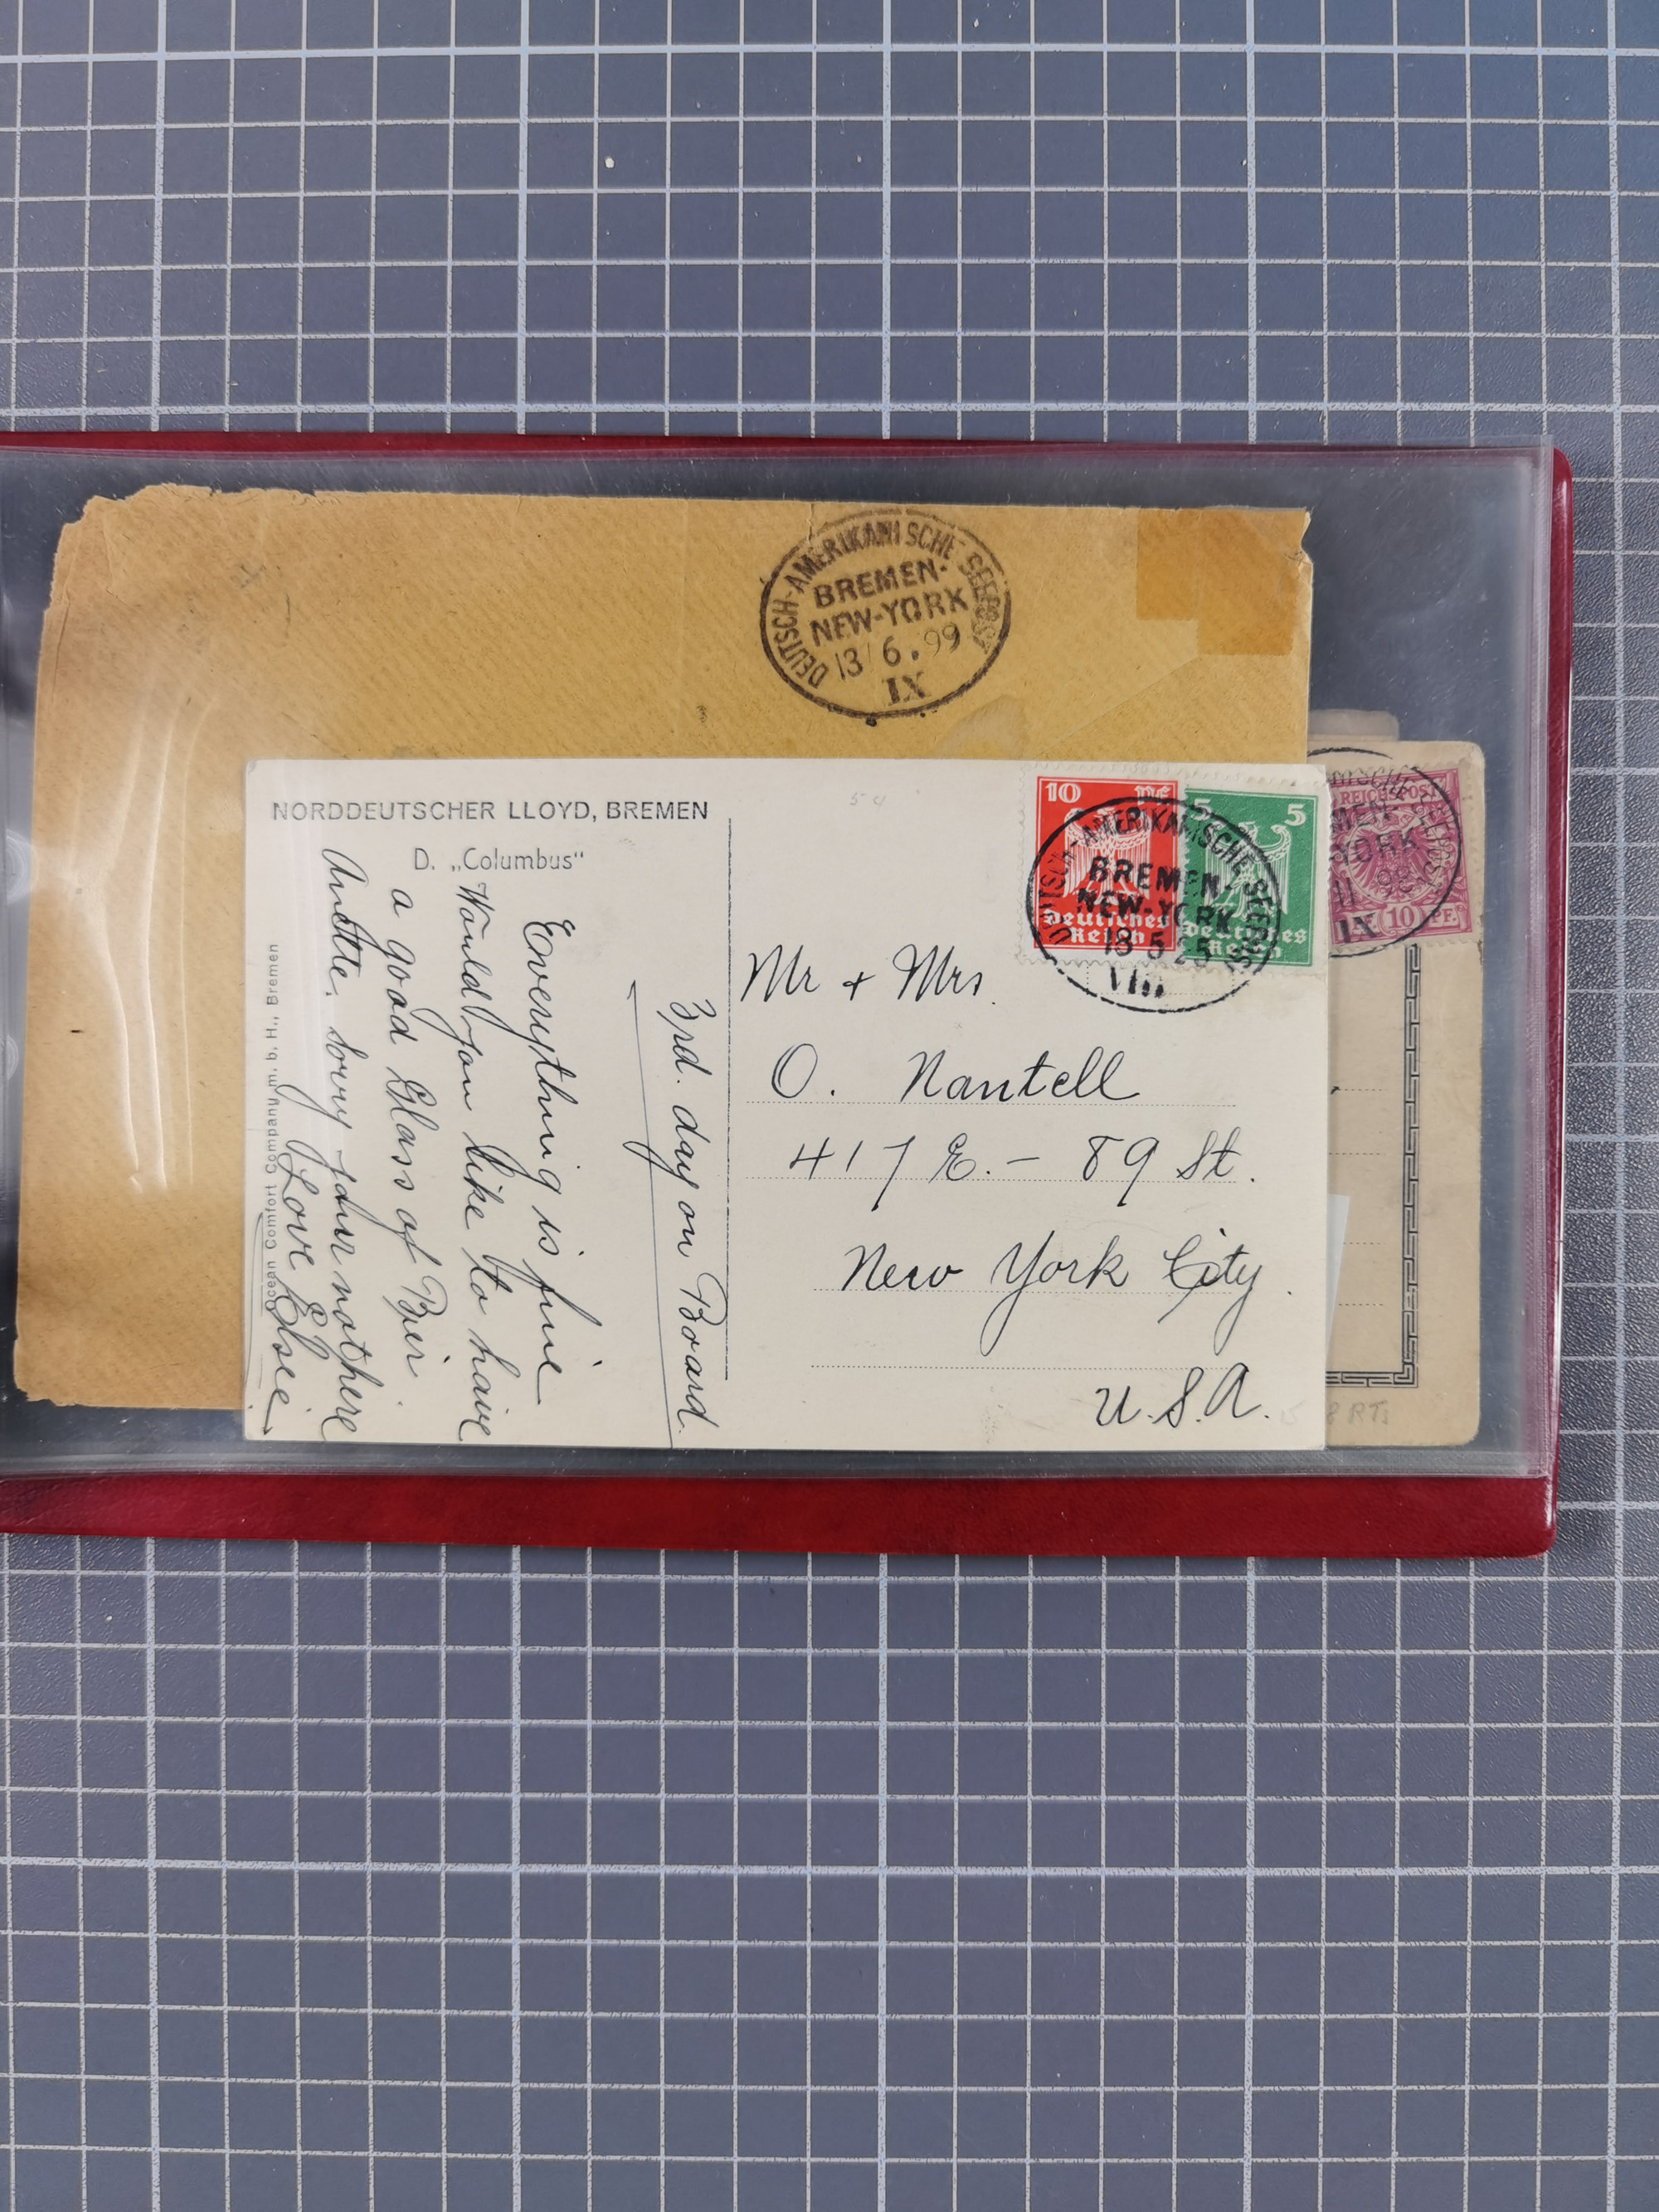 DEUTSCH-AMERIKANISCHE SEEPOST
BREMEN-
NEW-YORK
13/6.99
IX
NORDDEUTSCHER LLOYD, BREMEN
D. „Columbus“
3rd. day on Board.
Everything is fine
Would you like to have
a good Glass of Bier
sorry your not here
Love Elsie
Ocean Comfort Company m. b. H., Bremen
10 Pf
Deutsches
Reich
5 5
Deutsches
Reich
DEUTSCH-AMERIKANISCHE SEEPOST
BREMEN-
NEW-YORK
18 5 25
VIII
Mr + Mrs.
O. Nantell
417 E. - 89 St.
New York City.
U.S.A.
REICHSPOST
10 PF.
MEN-
YORK
98
IX
8 RT